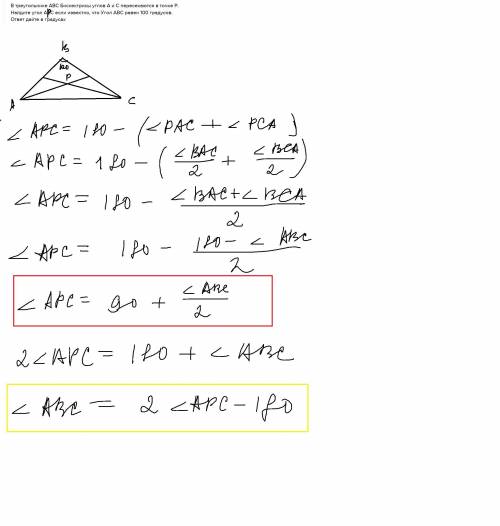 В треугольнике ABC Биссектрисы углов A и C пересекаются в точке P.
Найдите угол APC если известно, что Угол ABC равен 100 градусов.
Ответ дайте в градусах
B
100
P
A
C
∠APC = 180 - (∠PAC + ∠PCA)
∠APC = 180 - (∠BAC/2 + ∠BCA/2)
∠APC = 180 - (∠BAC + ∠BCA)/2
∠APC = 180 - (180 - ∠ABC)/2
∠APC = 90 + ∠ABC/2
2∠APC = 180 + ∠ABC
∠ABC = 2∠APC - 180